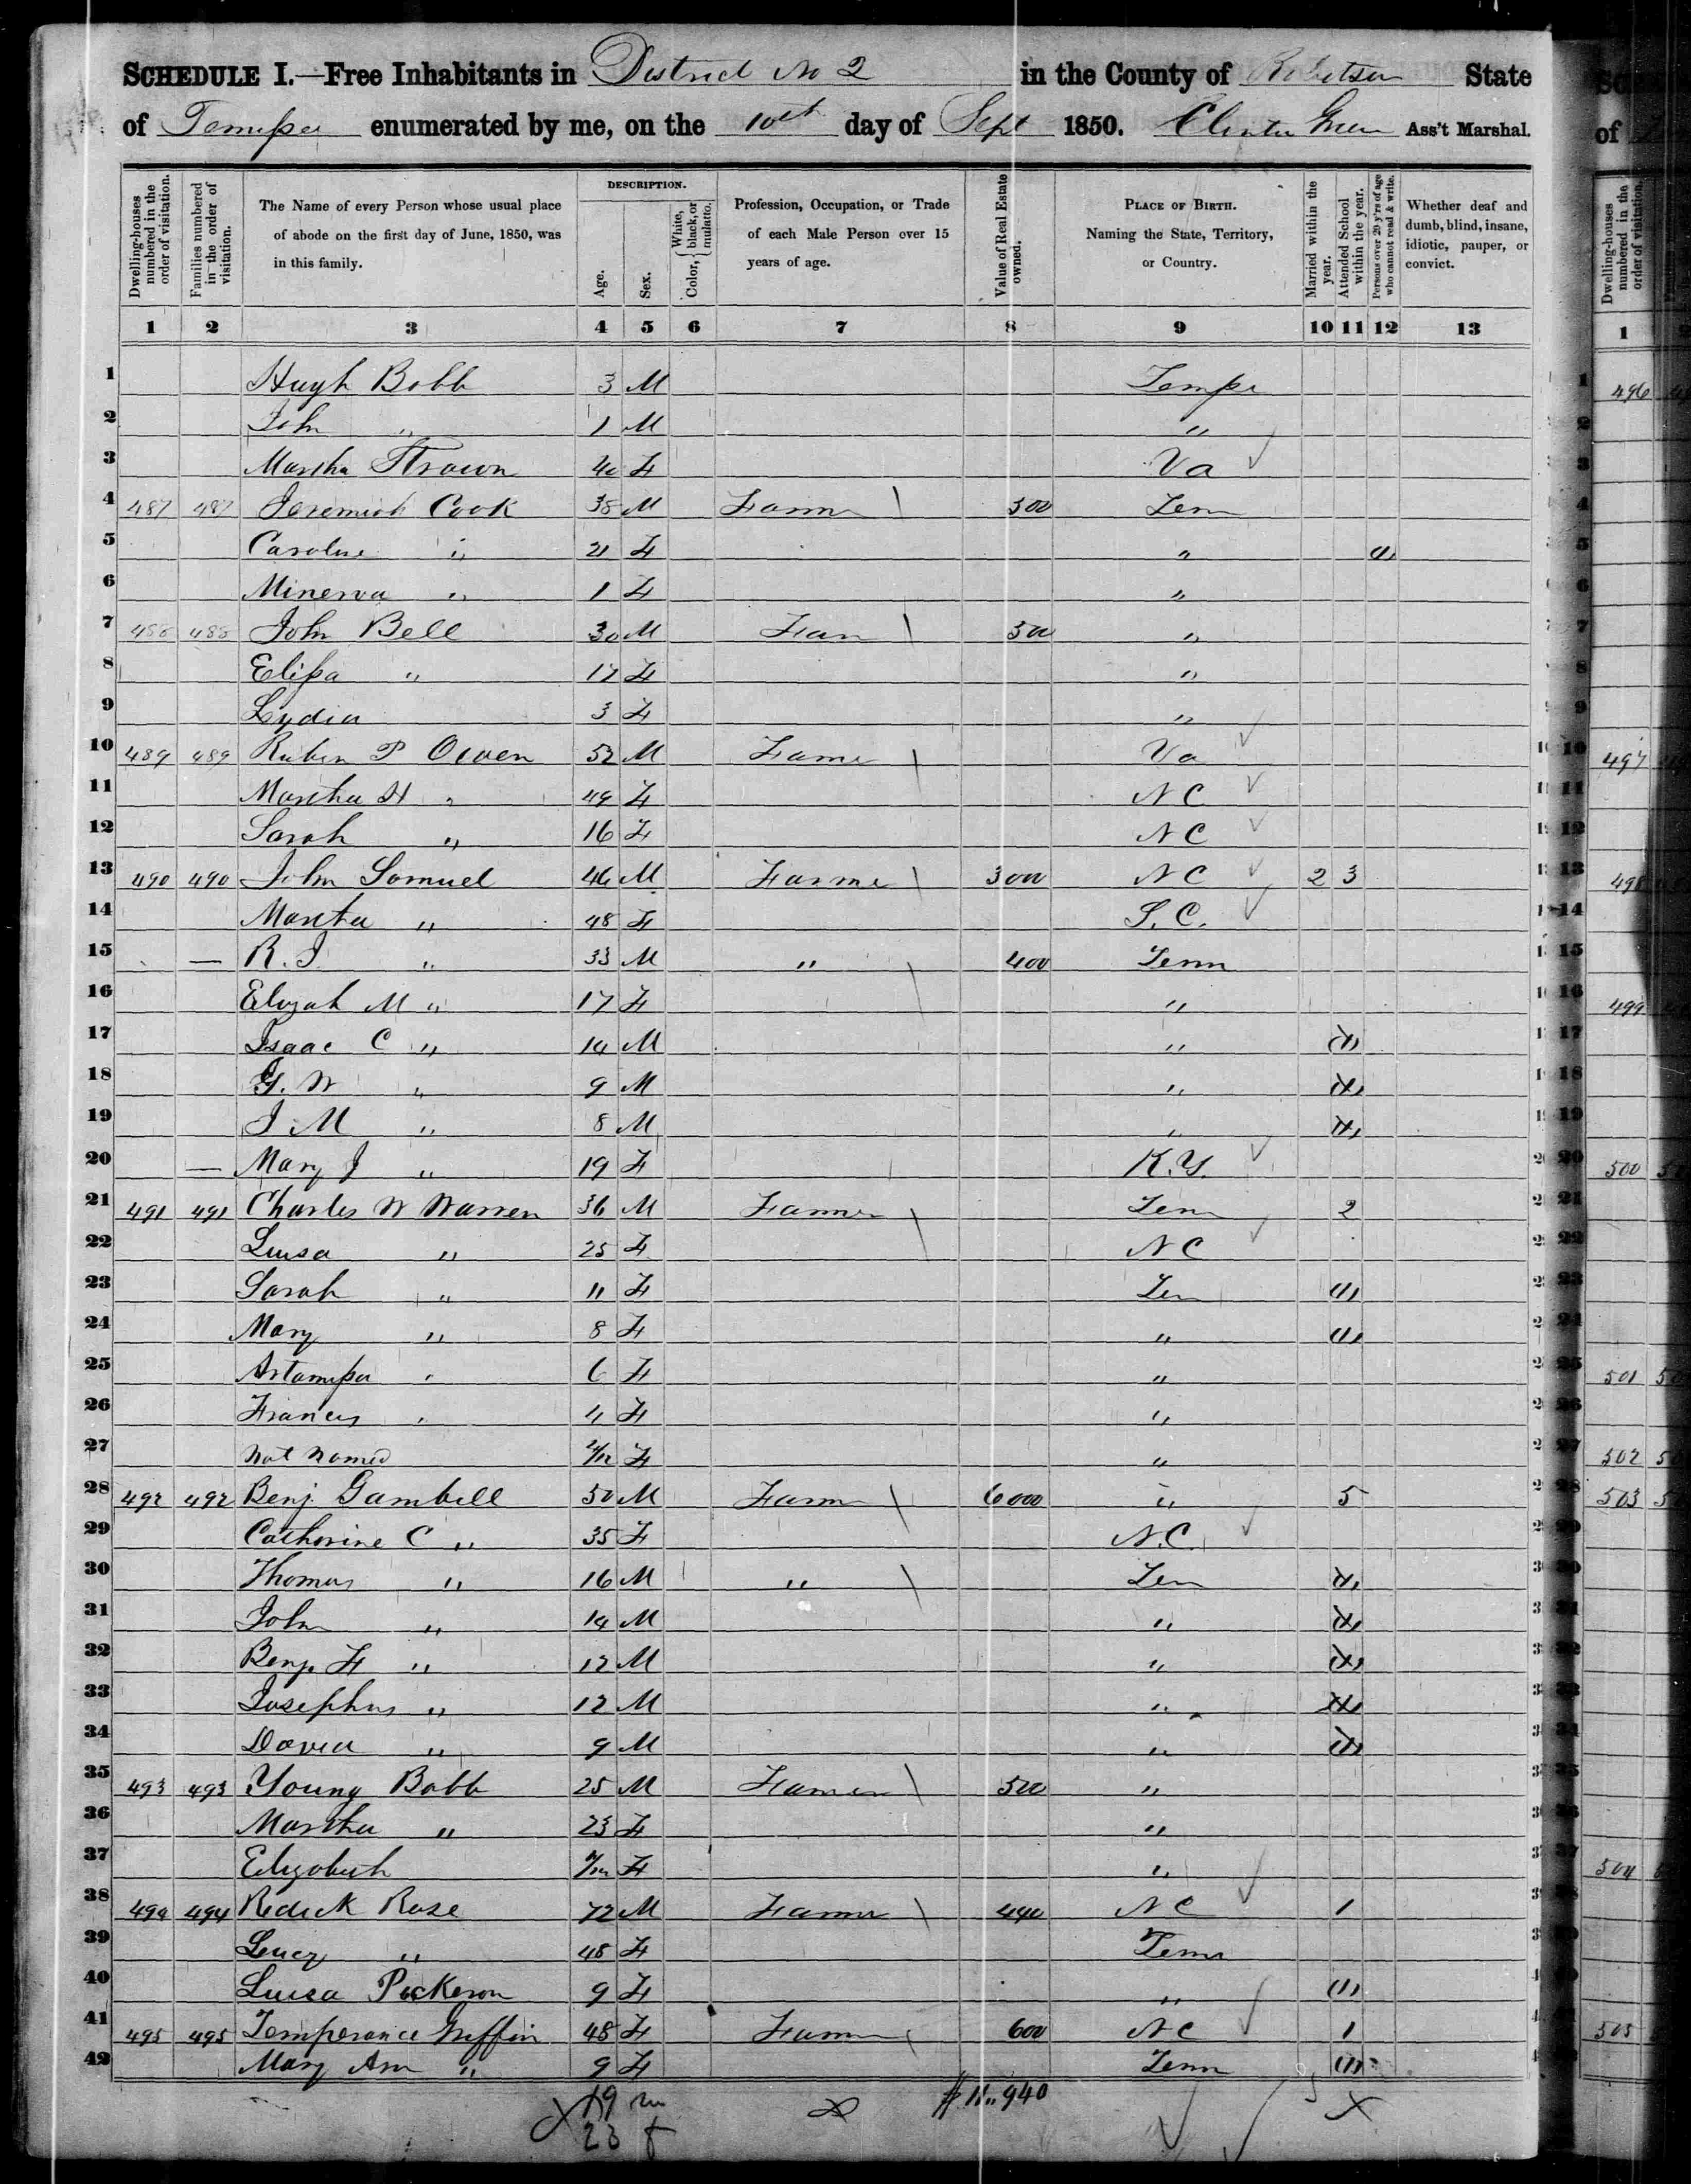 SCHEDULE I.—Free Inhabitants in District No 2 in the County of Robertson State
of Tennessee enumerated by me, on the 10th day of Sept 1850. Clinton Green Ass't Marshal.
Dwelling-houses numbered in the order of visitation.
Families numbered in the order of visitation.
The Name of every Person whose usual place of abode on the first day of June, 1850, was in this family.
DESCRIPTION.
Age.
Sex.
Color, { White, black, or mulatto.
Profession, Occupation, or Trade of each Male Person over 15 years of age.
Value of Real Estate owned.
PLACE OF BIRTH. Naming the State, Territory, or Country.
Married within the year.
Attended School within the year.
Persons over 20 y'rs of age who cannot read & write.
Whether deaf and dumb, blind, insane, idiotic, pauper, or convict.
1 2 3 4 5 6 7 8 9 10 11 12 13
1 Hugh Bobb 3 M
2 John " 1 M "
3 Martha 40 F Va
4 487 487 Jeremiah Cook 38 M Farmer 300 Tenn
5 Caroline " 21 F " (1)
6 Minerva " 1 F "
7 488 488 John Bell 30 M Farm 500 "
8 Elissa " 17 F "
9 Lydia 3 F "
10 489 489 Ruben P Owen 52 M Farmer Va
11 Martha H " 49 F N C
12 Sarah " 16 F N C
13 490 490 John Samuel 46 M Farmer 3000 N C 2 3
14 Martha " 48 F S. C.
15 — R. J. " 33 M " 400 Tenn
16 Elizah M " 17 F "
17 Isaac C " 14 M " (1)
18 G. W " 9 M " (1)
19 J M " 8 M " (1)
20 — Mary J " 19 F K.Y.
21 491 491 Charles W Warren 36 M Farmer Tenn 2
22 Luisa " 25 F N C
23 Sarah " 11 F Ten (1)
24 Mary " 8 F " (1)
25 Artamissa " 6 F "
26 Francis " 4 F "
27 Not Named 2/12 F "
28 492 492 Benj. Gambill 50 M Farm 6000 " 5
29 Catherine C " 35 F N.C.
30 Thomas " 16 M " Ten (1)
31 John " 14 M " (1)
32 Benj. F " 12 M " (1)
33 Josephus " 12 M " (1)
34 David " 9 M " (1)
35 493 493 Young Bobb 25 M Farmer 500 "
36 Martha " 23 F "
37 Elizabeth 7/12 F "
38 494 494 Redick Rose 72 M Farmer 440 N C 1
39 Lucy " 48 F Tenn
40 Luisa Pickeron 9 F " (1)
41 495 495 Temperance Griffin 48 F Farmer 600 N C 1
42 Mary Ann " 9 F Tenn (1)
19 m
23 f
496
497
498
499
500
501
502
503
504
505